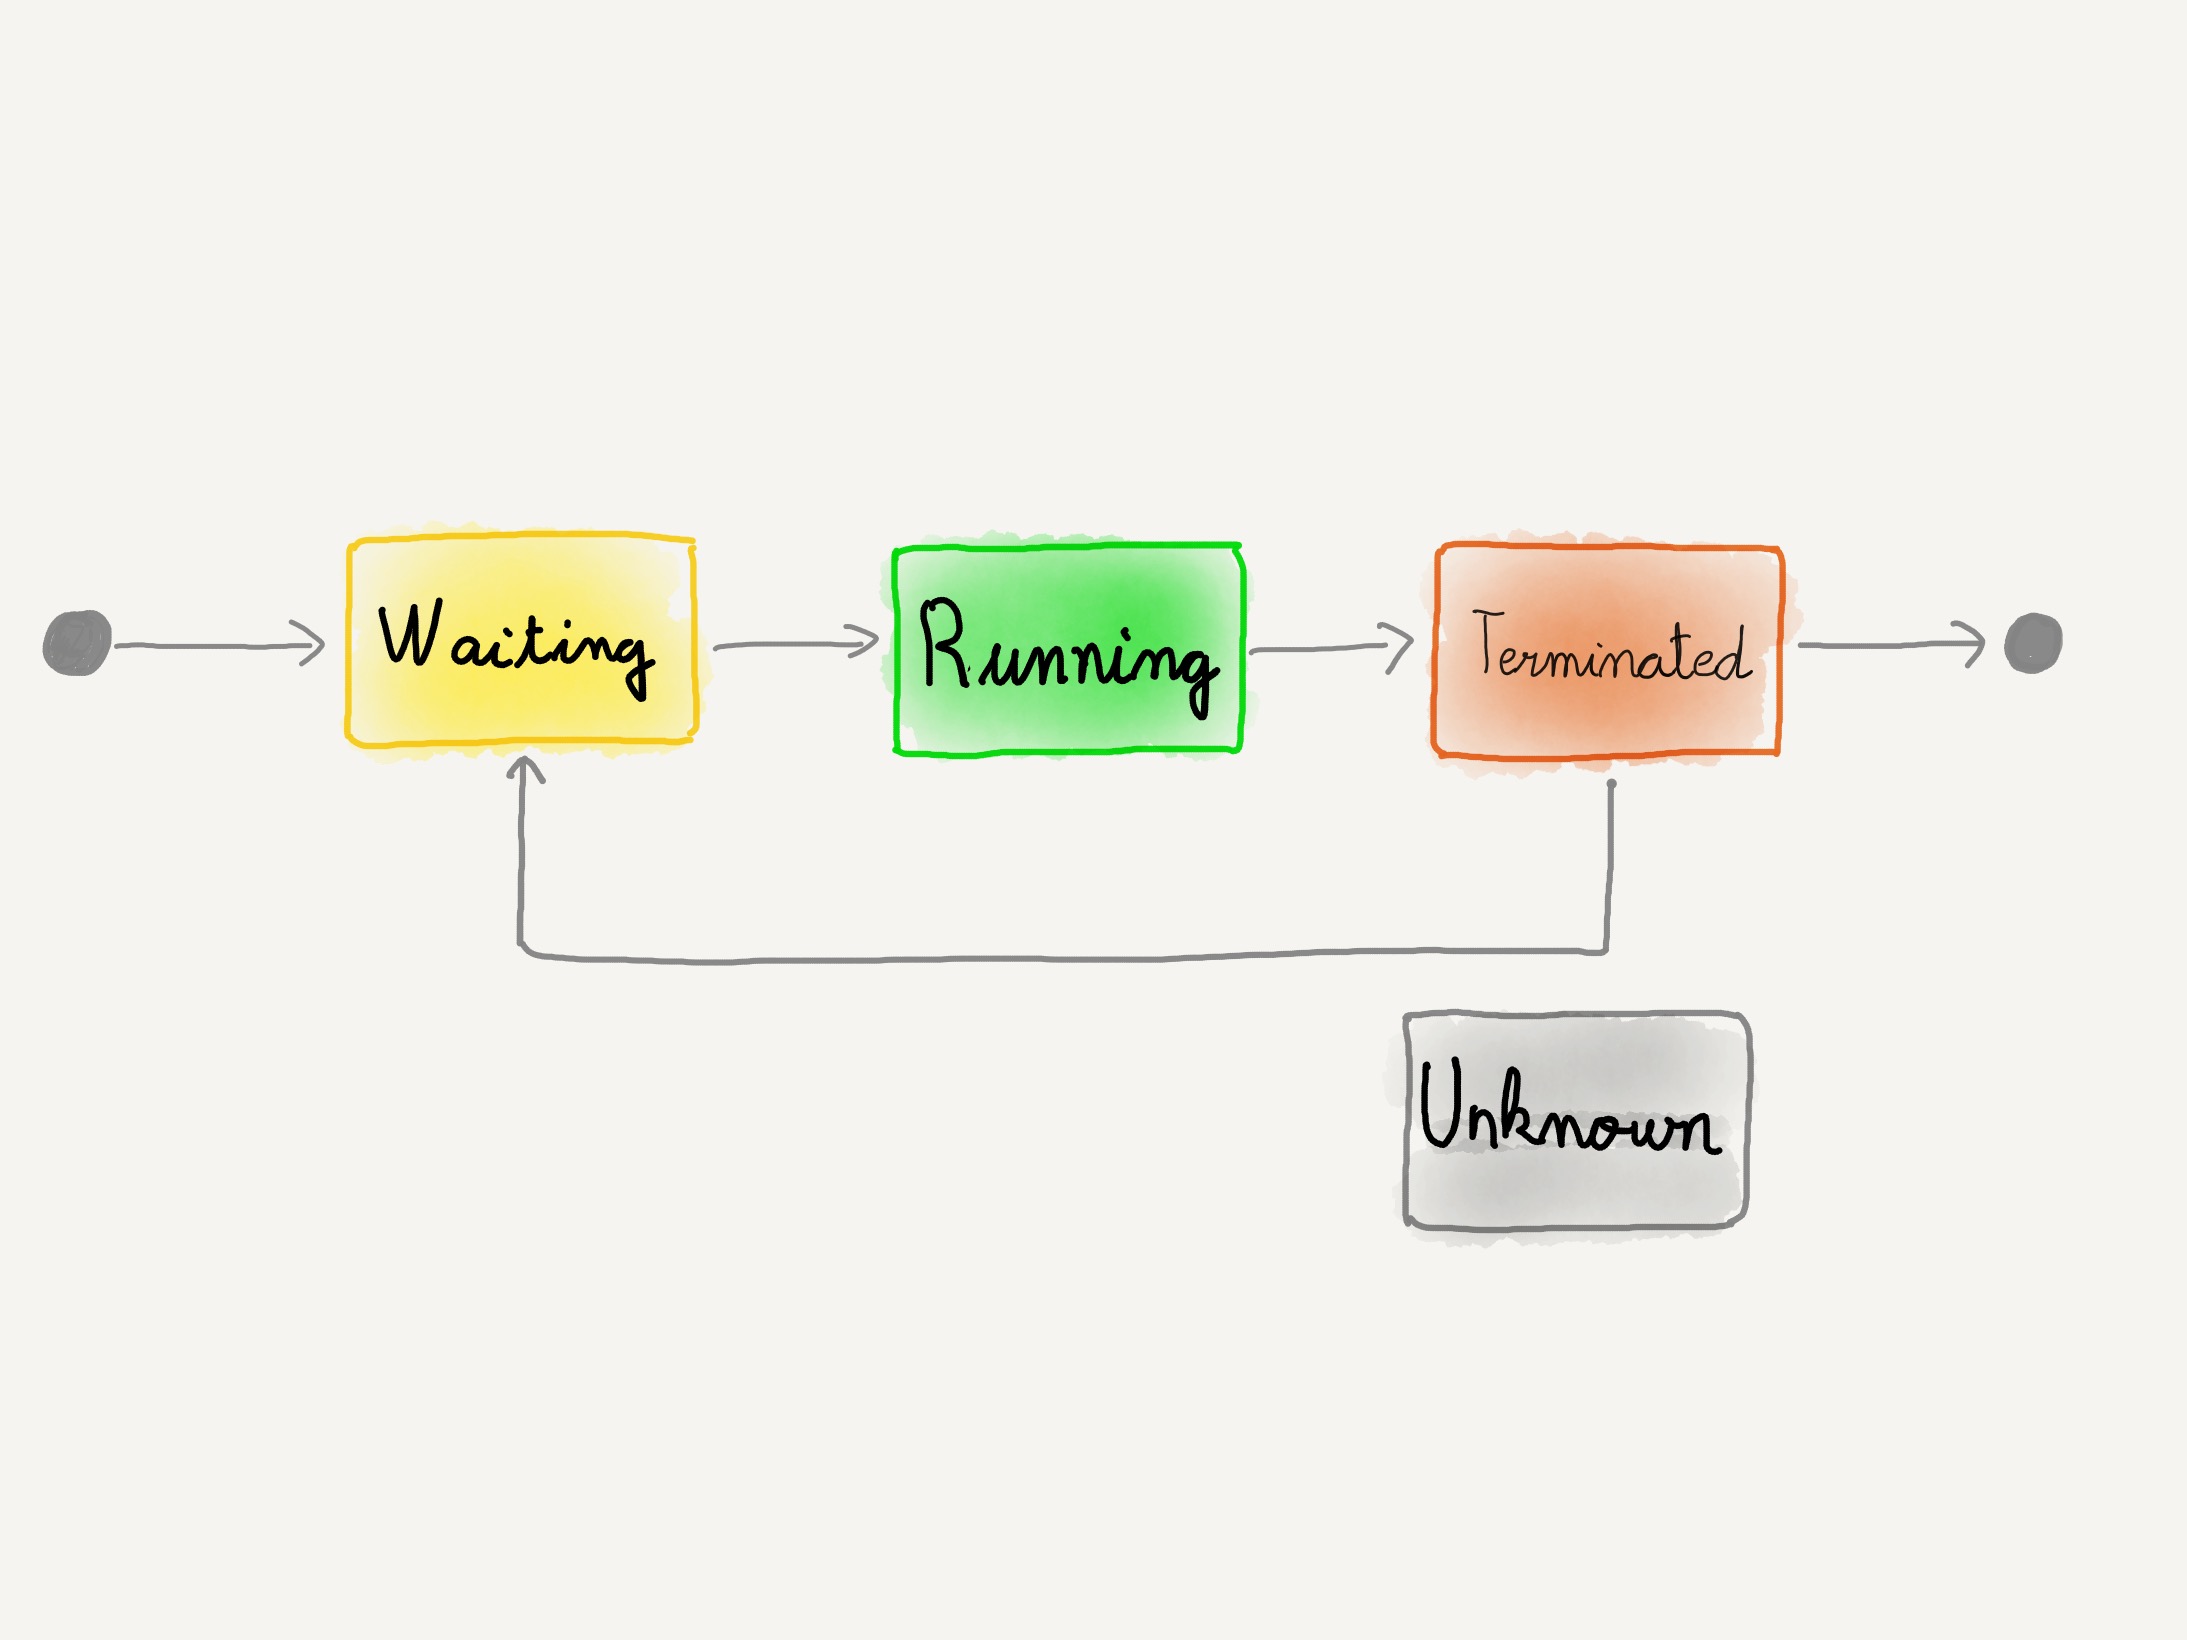 Waiting
Running
Terminated
Unknown